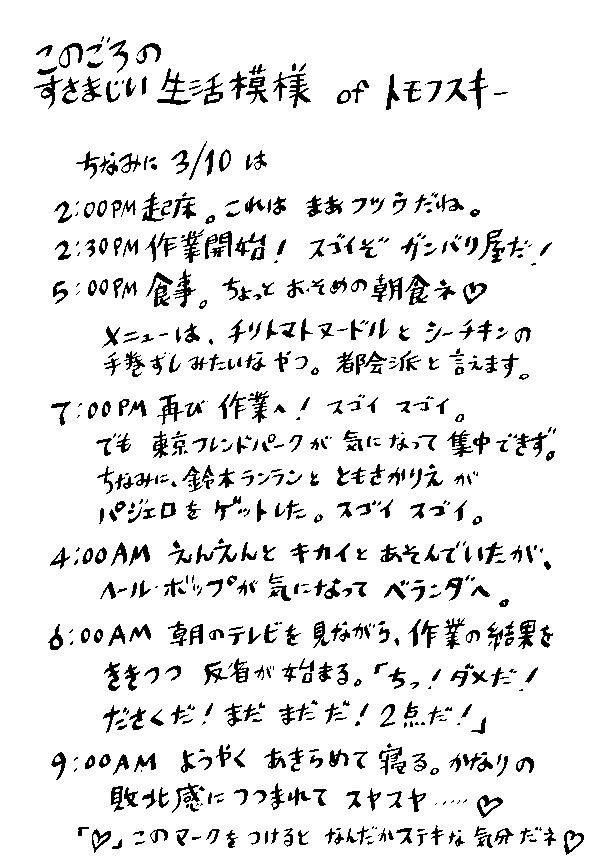 このごろの
すさまじい 生活模様 of トモフスキー
ちなみに 3/10 は
2:00PM 起床。これは まあフツウだね。
2:30PM 作業開始! スゴイぞ ガンバリ屋だ!
5:00PM 食事。ちょっと おそめの朝食ネ♡
メニューは、チリトマトヌードルと シーチキンの
手巻ずしみたいなやつ。都会派と言えます。
7:00PM 再び 作業へ! スゴイ スゴイ。
でも 東京フレンドパークが 気になって 集中できず。
ちなみに、鈴木ランランと ともさかりえ が
パジェロを ゲットした。スゴイ スゴイ。
4:00AM えんえんと キカイと あそんでいたが、
ヘール・ボップが 気になって ベランダへ。
6:00AM 朝のテレビを 見ながら、作業の結果を
ききつつ 反省が始まる。「ちっ!ダメだ!
ださくだ!まだ まだ だ!2点だ!」
9:00AM ようやく あきらめて 寝る。かなりの
敗北感に つつまれて スヤスヤ……♡
「♡」このマークを つけると なんだかステキな 気分だネ♡